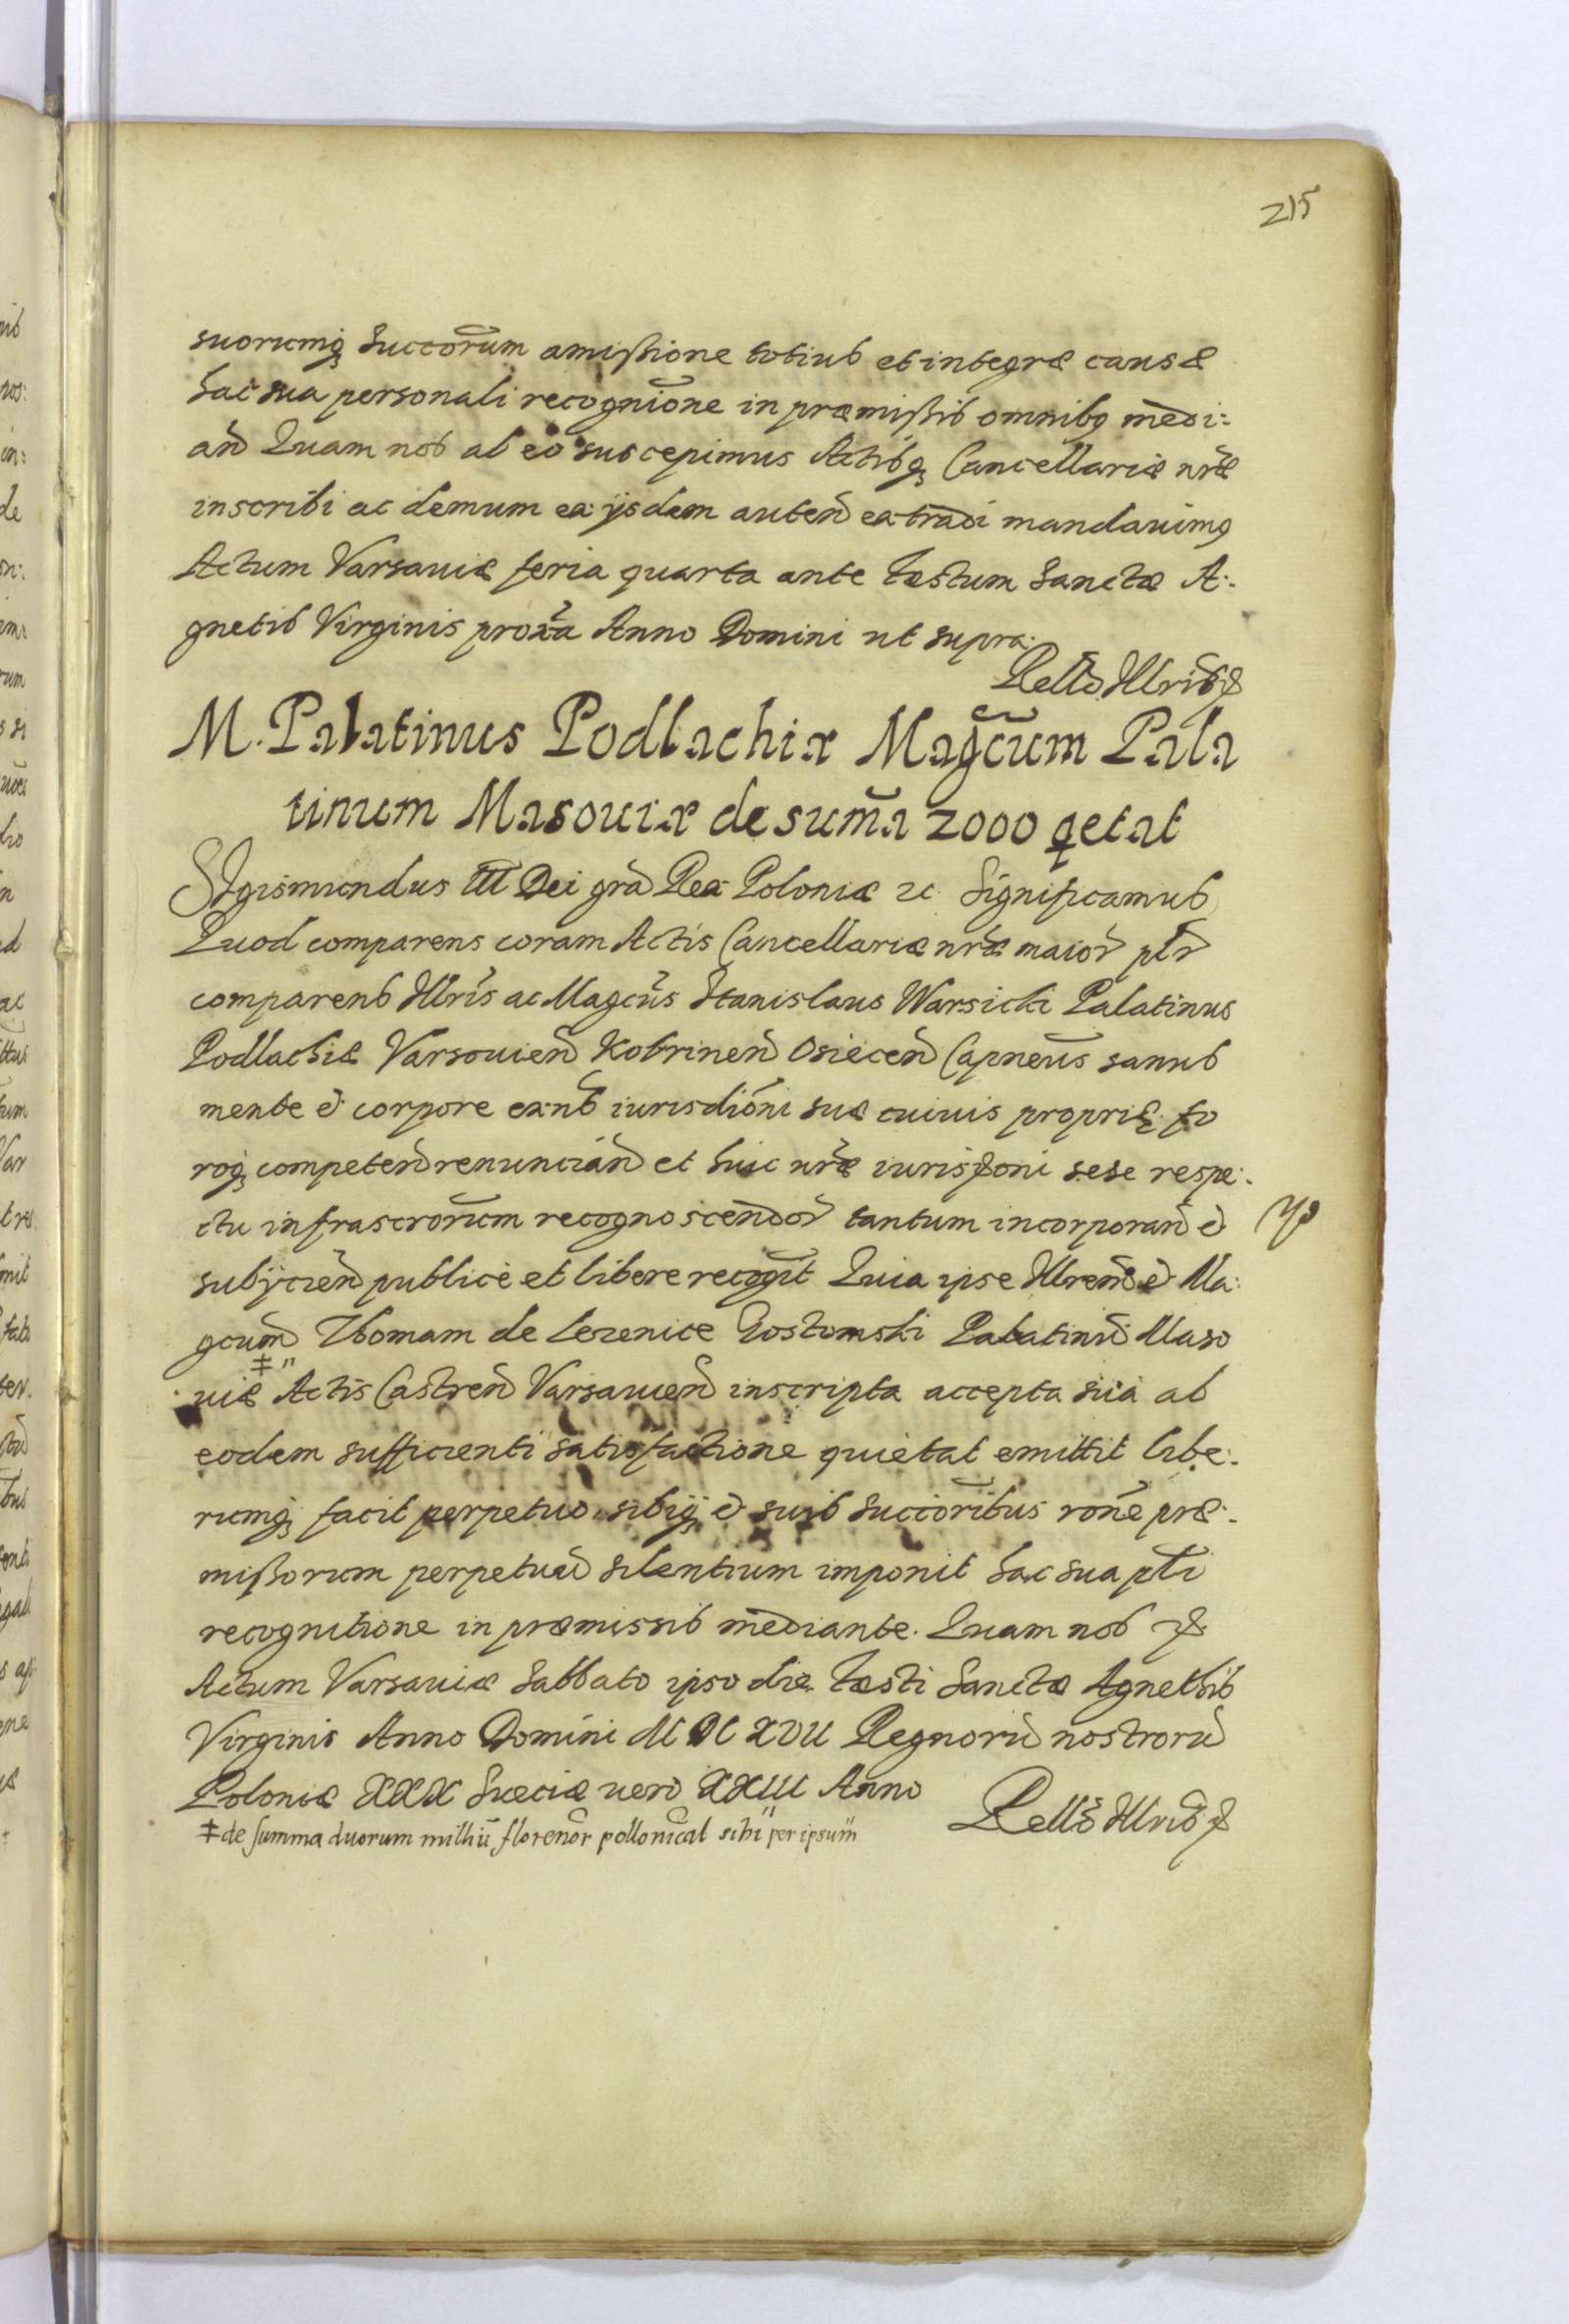 215
suorumq; Succorum amissione totius et integræ causæ
hac sua personali recognione in præmissis omnibq medi:
an Quam nos ab eo suscepimus Actisq; Cancellariæ nræ
inscribi ac demum ex ijsdem auten extradi mandauimq
Actum Varsauiæ feria quarta ante Festum Sanctæ A:
gnetis Virginis proxa Anno Domini ut supra.
Rello Illris
M. Palatinus Podlachiæ Magcum Pala
tinum Masouiæ de suma 2000 qetat
SIgismundus III Dei gra Rex Poloniæ 2c Significamus
Quod comparens coram Actis Cancellariæ nræ maior plr
comparens Illris ac Magcus Stanislaus Warsicki Palatinus
Podlachiæ Varsouien Kobrinen Osiecen Capneus sanus
mente et corpore exns iurisdioni suæ cuiuis propriæ fo
roq; competen renuncian et huic nræ iurisoni sese respe:
ctu infrascrorum recognoscendor tantum incorporan et
subijcien publicè et libere recogit Quia ipse Illrem et Ma:
gcum Thomam de Lezenice Gostomski Palatinu Maso
uiæ ‡" Actis Castren Varsauien inscripta accepta sua ab
eodem sufficienti satisfactione quietat emittit libe:
rumq; facit perpetuo, sibiq; et suis Succoribus rone præ:
missorum perpetuu silentium imponit hac sua pli
recognitione in præmissis mediante. Quam nos
Actum Varsauiæ Sabbato ipso die Festi Sanctæ Agnethis
Virginis Anno Domini M DC XVII Regnoru nostroru
Poloniæ XXX Sueciæ uero XXIII Anno
Rello Illris
‡ de summa duorum milliu florenor pollonical sibi" per ipsum